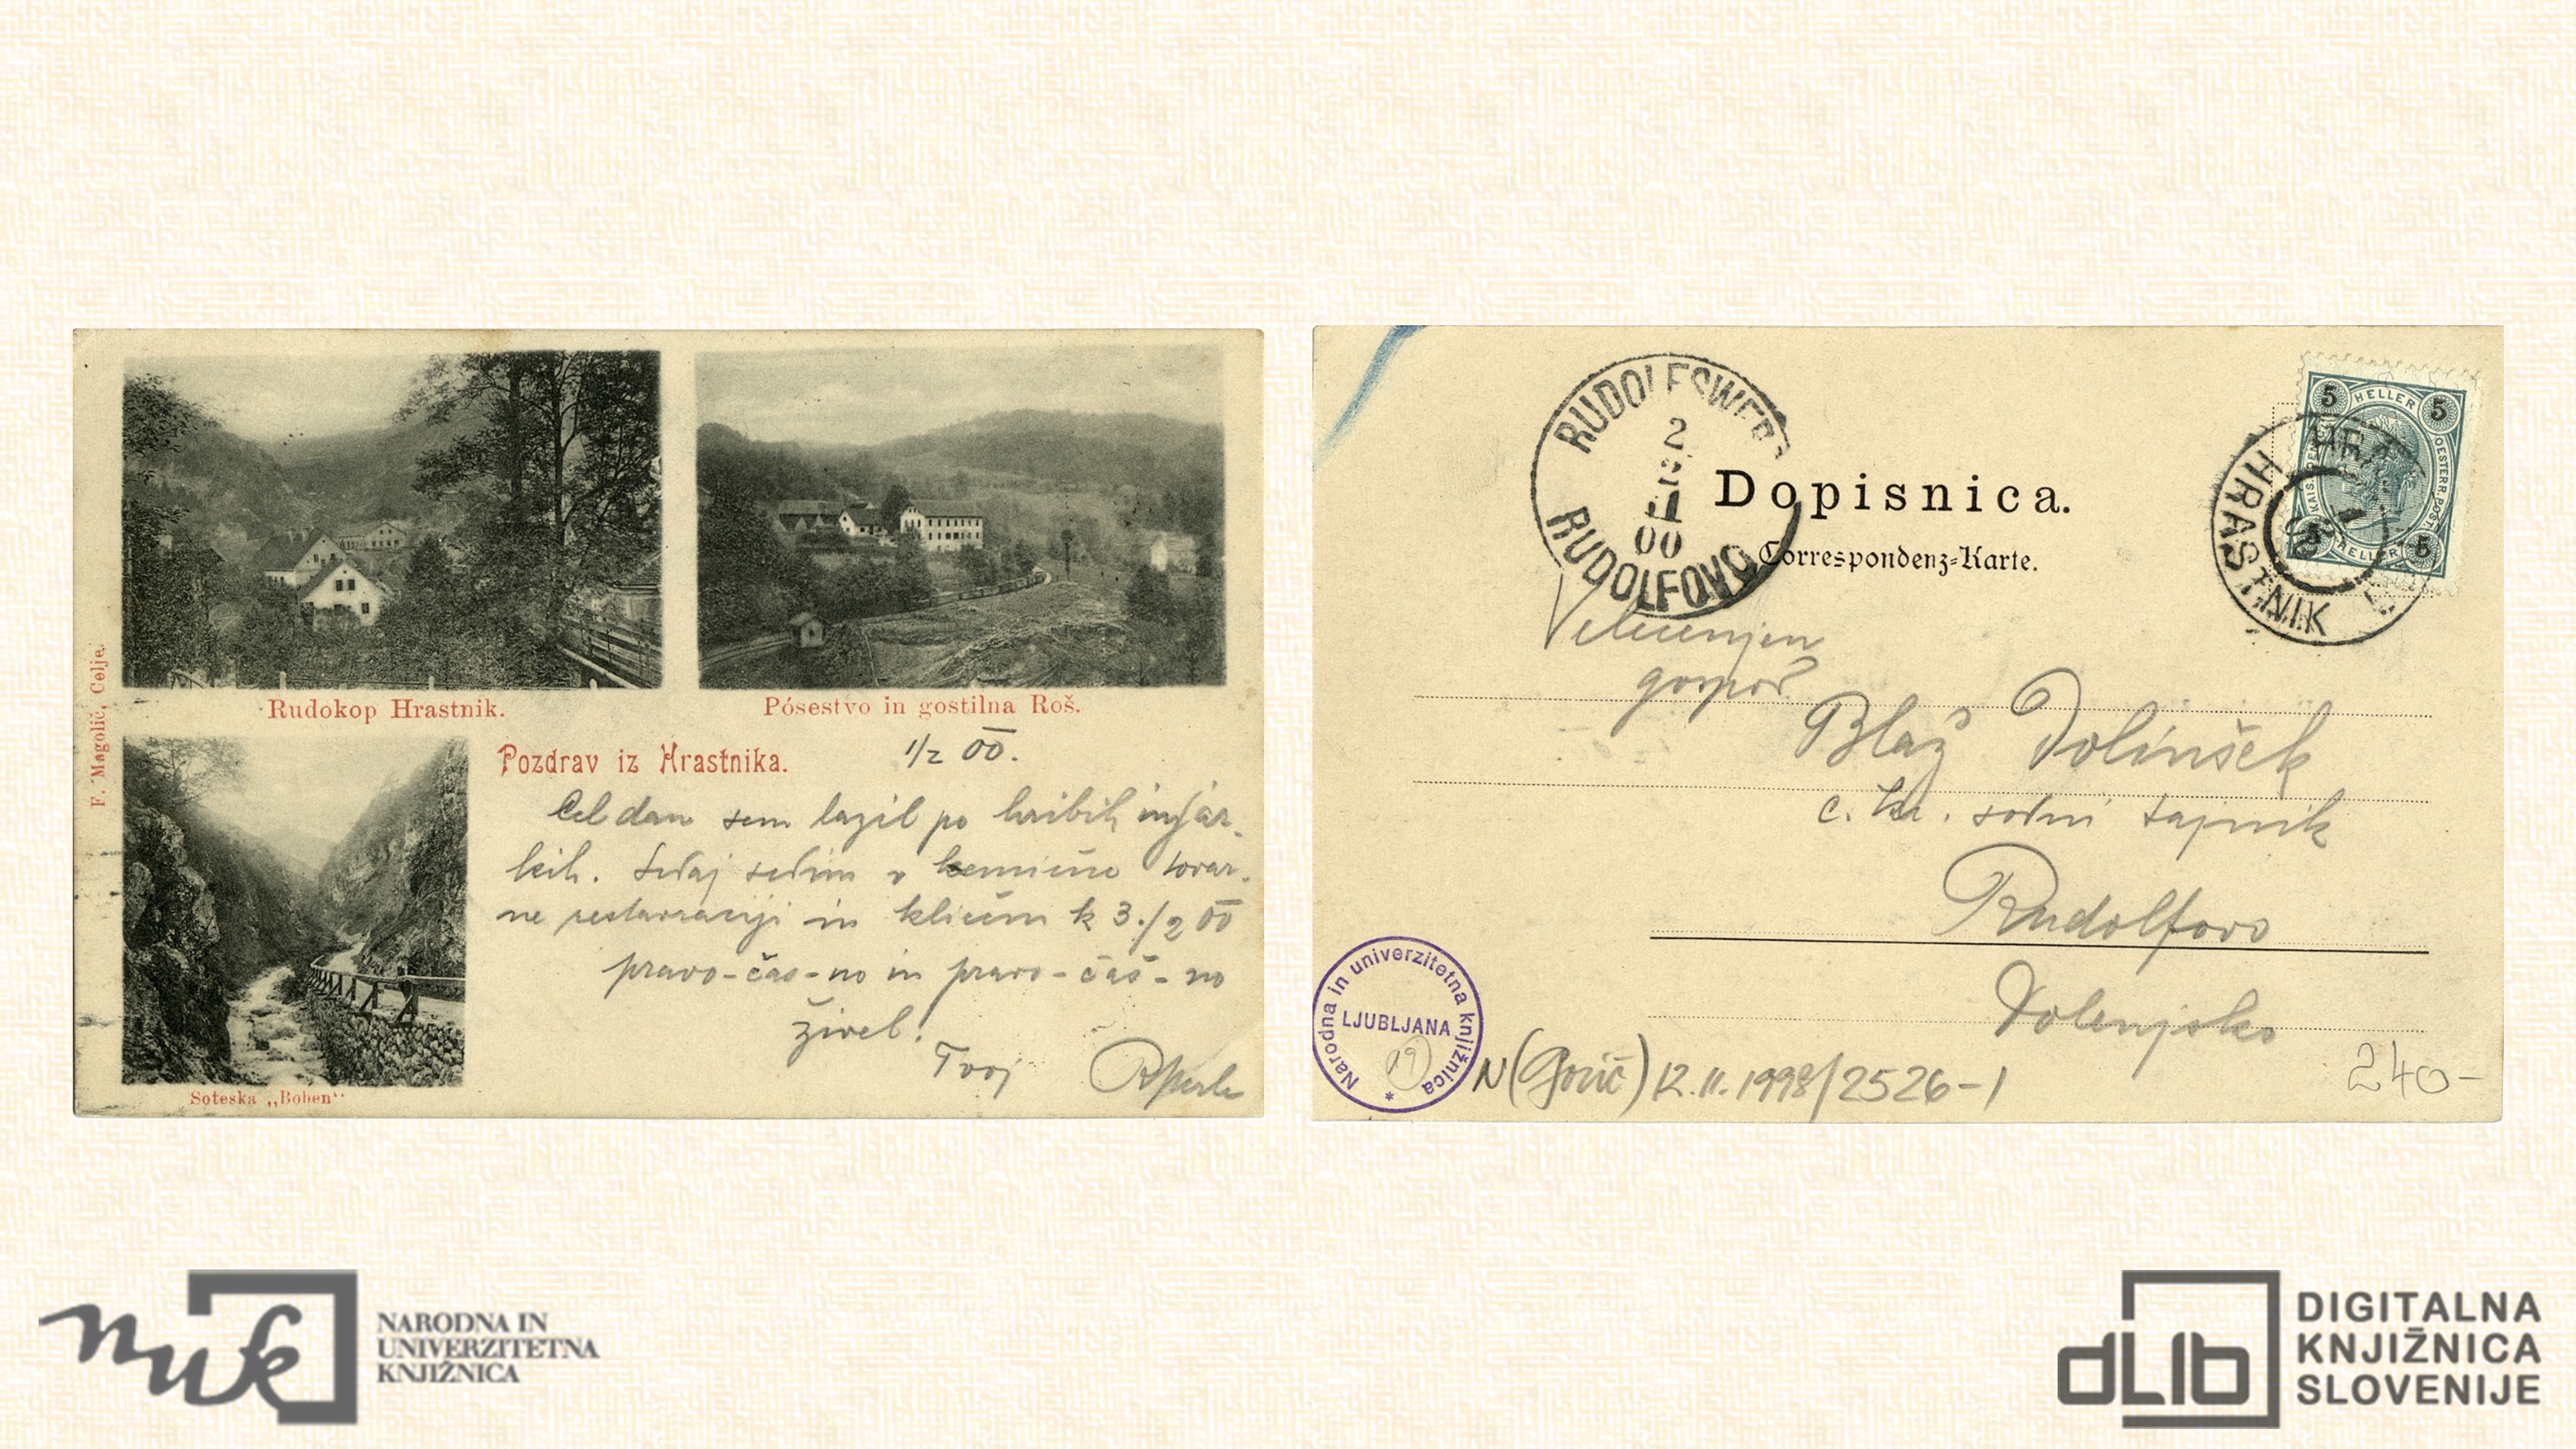 F. Magolič, Celje.
Rudokop Hrastnik.
Pósestvo in gostilna Roš.
Pozdrav iz Hrastnika.
1/2 00.
Cel dan sem lazil po hribih in jar-
kih. Sedaj sedim v kemične tovar-
ne restavraciji in kličem k 3./2 00
pravo-čas-no in pravo-čaš-no
živel!
Tvoj
Soteska „Boben“
RUDOLFSWER
2
00
RUDOLFOVO
Dopisnica.
Correspondenz-Karte.
5 HELLER 5
OESTERR. POST
5 HELLER 5
HRASTNIK
Velecenjen
gospod
Blaž Dolinšek
c. kr. sodni tajnik
Rudolfovo
Dolenjsko
Narodna in univerzitetna knjižnica
LJUBLJANA
19
*
12.11.1998/2526-1
240-
nuk
NARODNA IN
UNIVERZITETNA
KNJIŽNICA
dLib
DIGITALNA
KNJIŽNICA
SLOVENIJE